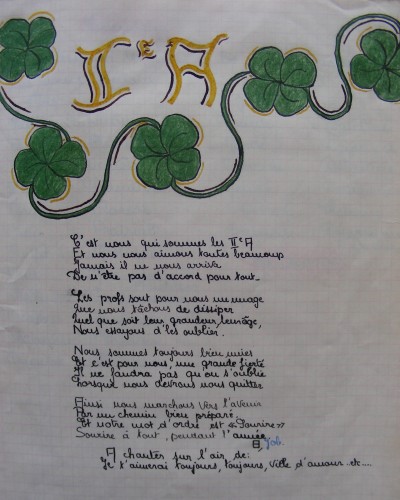 IIᵉ A
C'est nous qui sommes les IIᵉ A
Et nous nous aimons toutes beaucoup
Jamais il ne nous arriva
De n'être pas d'accord pour tout.
Les profs sont pour nous un nuage
Que nous tâchons de dissiper
Quel que soit leur grandeur, leur âge,
Nous essayons d'les oublier.
Nous sommes toujours bien unies
Et c'est pour nous, une grande fierté
Il ne faudra pas qu'on s'oublie
Lorsque nous devrons nous quitter
Ainsi nous marchons vers l'avenir
Par un chemin bien préparé.
Et notre mot d'ordre est « Sourire »
Sourire à tout, pendant l'année
A chanter sur l'air de:
Je t'aimerai toujours, toujours, ville d'amour..etc....